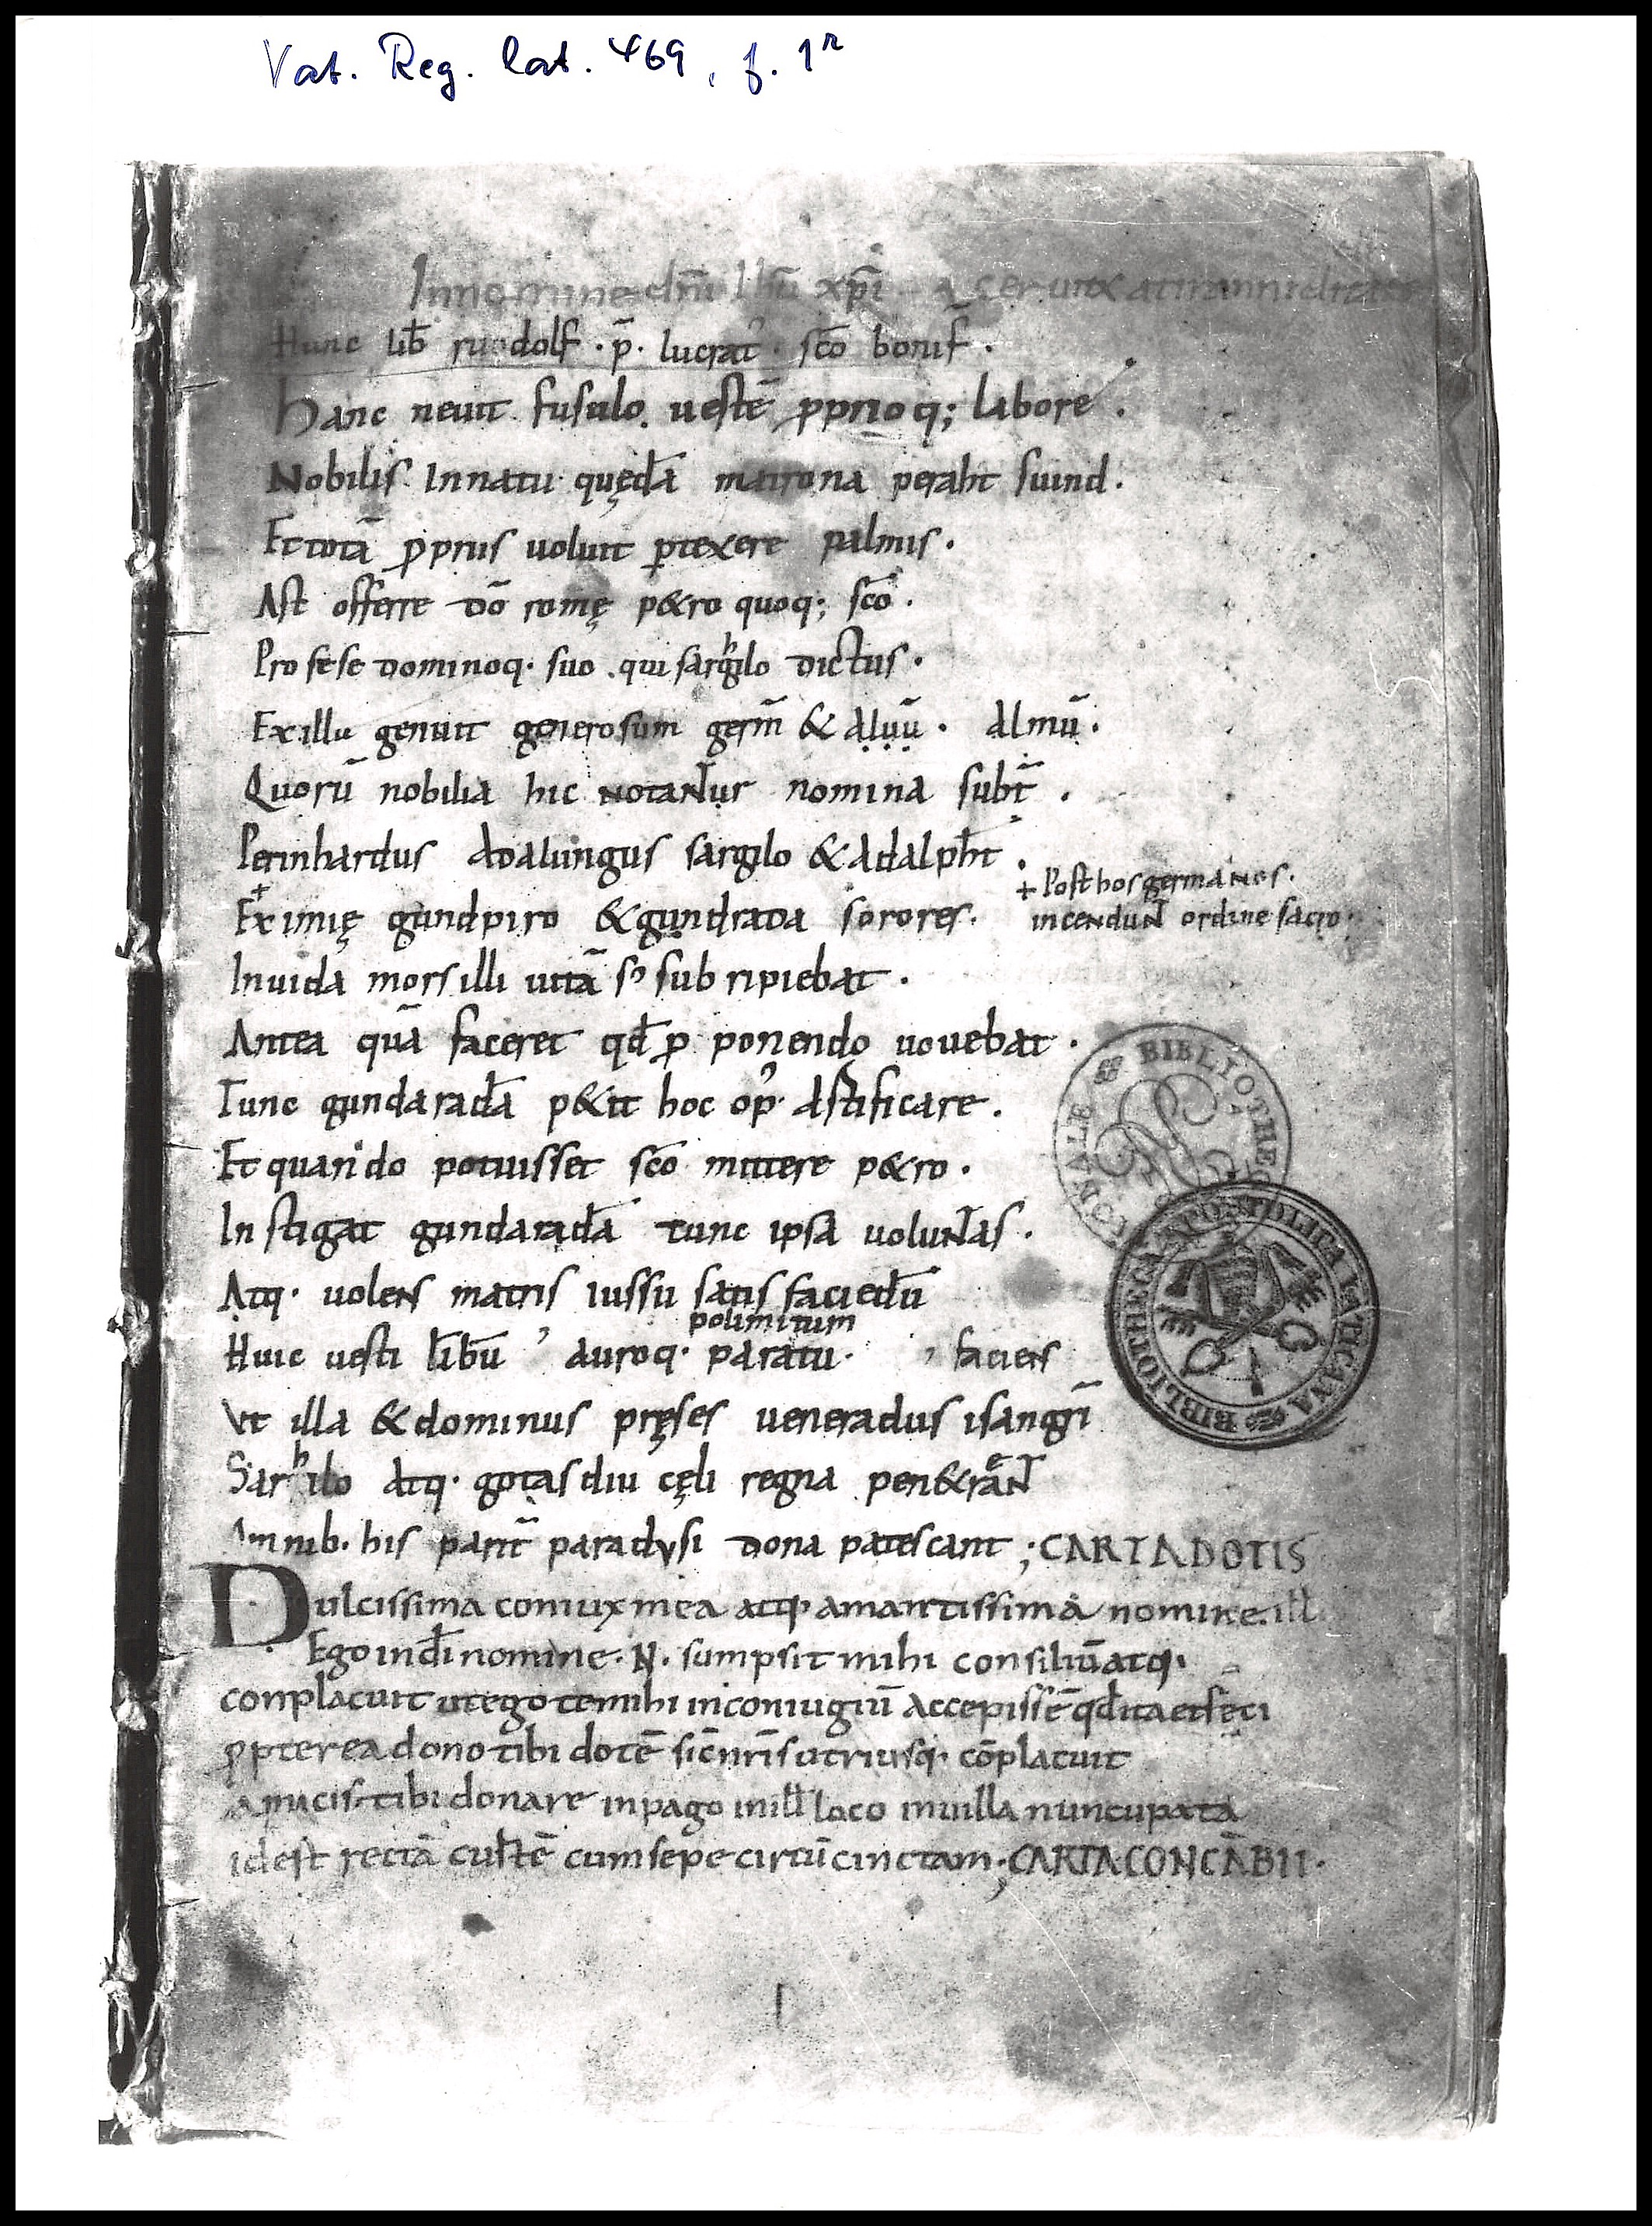 Vat. Reg. lat. 469, f. 1r
In nomine dn̄i ihū xp̄i
Hunc lib̄ ruodolf · p̄ · lucrat᾽ · sc̄o bonif̄ ·
hanc neuit fusulo. uestē ꝓprioq; labore .
Nobilis Innatu quędā matrona peraht suind .
Et totā ꝓpriis uoluit ꝑtexere palmis .
Ast offerre dō romę p&ro quoq; sc̄o .
Pro sese dominoq· suo . qui sarhgilo dictus .
Ex illu genuit generosum germ̄ & aluū . almū .
Quorū nobilia hic notantur nomina subt̄ .
Perinhardus adalungus sargilo & adalpht .
+ Post hos germanos .
Eximię gundpiro & gundrada sorores .
incendunt ordine sacro .
Inuida mors illi uitā s᾽ sub ripiebat .
Antea quā faceret qđ ꝓ ponendo uouebat .
Tunc gundaradā p&it hoc op᾽ astificare .
Et quando potuisset sc̄o mittere p&ro .
In stigat gundaradā tunc ipsa voluntas .
Atq· uolens matris iussu satis faciedū
polimitum
Huic uesti lib̄ū ᾽ auroq· paratu · ᾽ faciens
Vt illa & dominus pręses ueneradus isangrī
Sarhilo atq· gotasdiu cęli regna pen&rent
Omnib· his parit̄ paradysi dona patescant ; CARTA DOTIS
Dulcissima coniux mea atq· amantissima nomine . ill
Ego in dī nomine · N · sumpsit mihi consiliū atq·
conplacuit ut ego te mihi in coniugiū accepissē qđ ita et feci
ꝓpterea dono tibi dotē sic̄ nrīs utriusq· cōplacuit
amicis tibi donare in pago in ill loco in uilla nuncupata
id est rectā custē cum sepe circūcinctam ; CARTA CONCĀBII ·
BIBLIOTHECA APOSTOLICA VATICANA